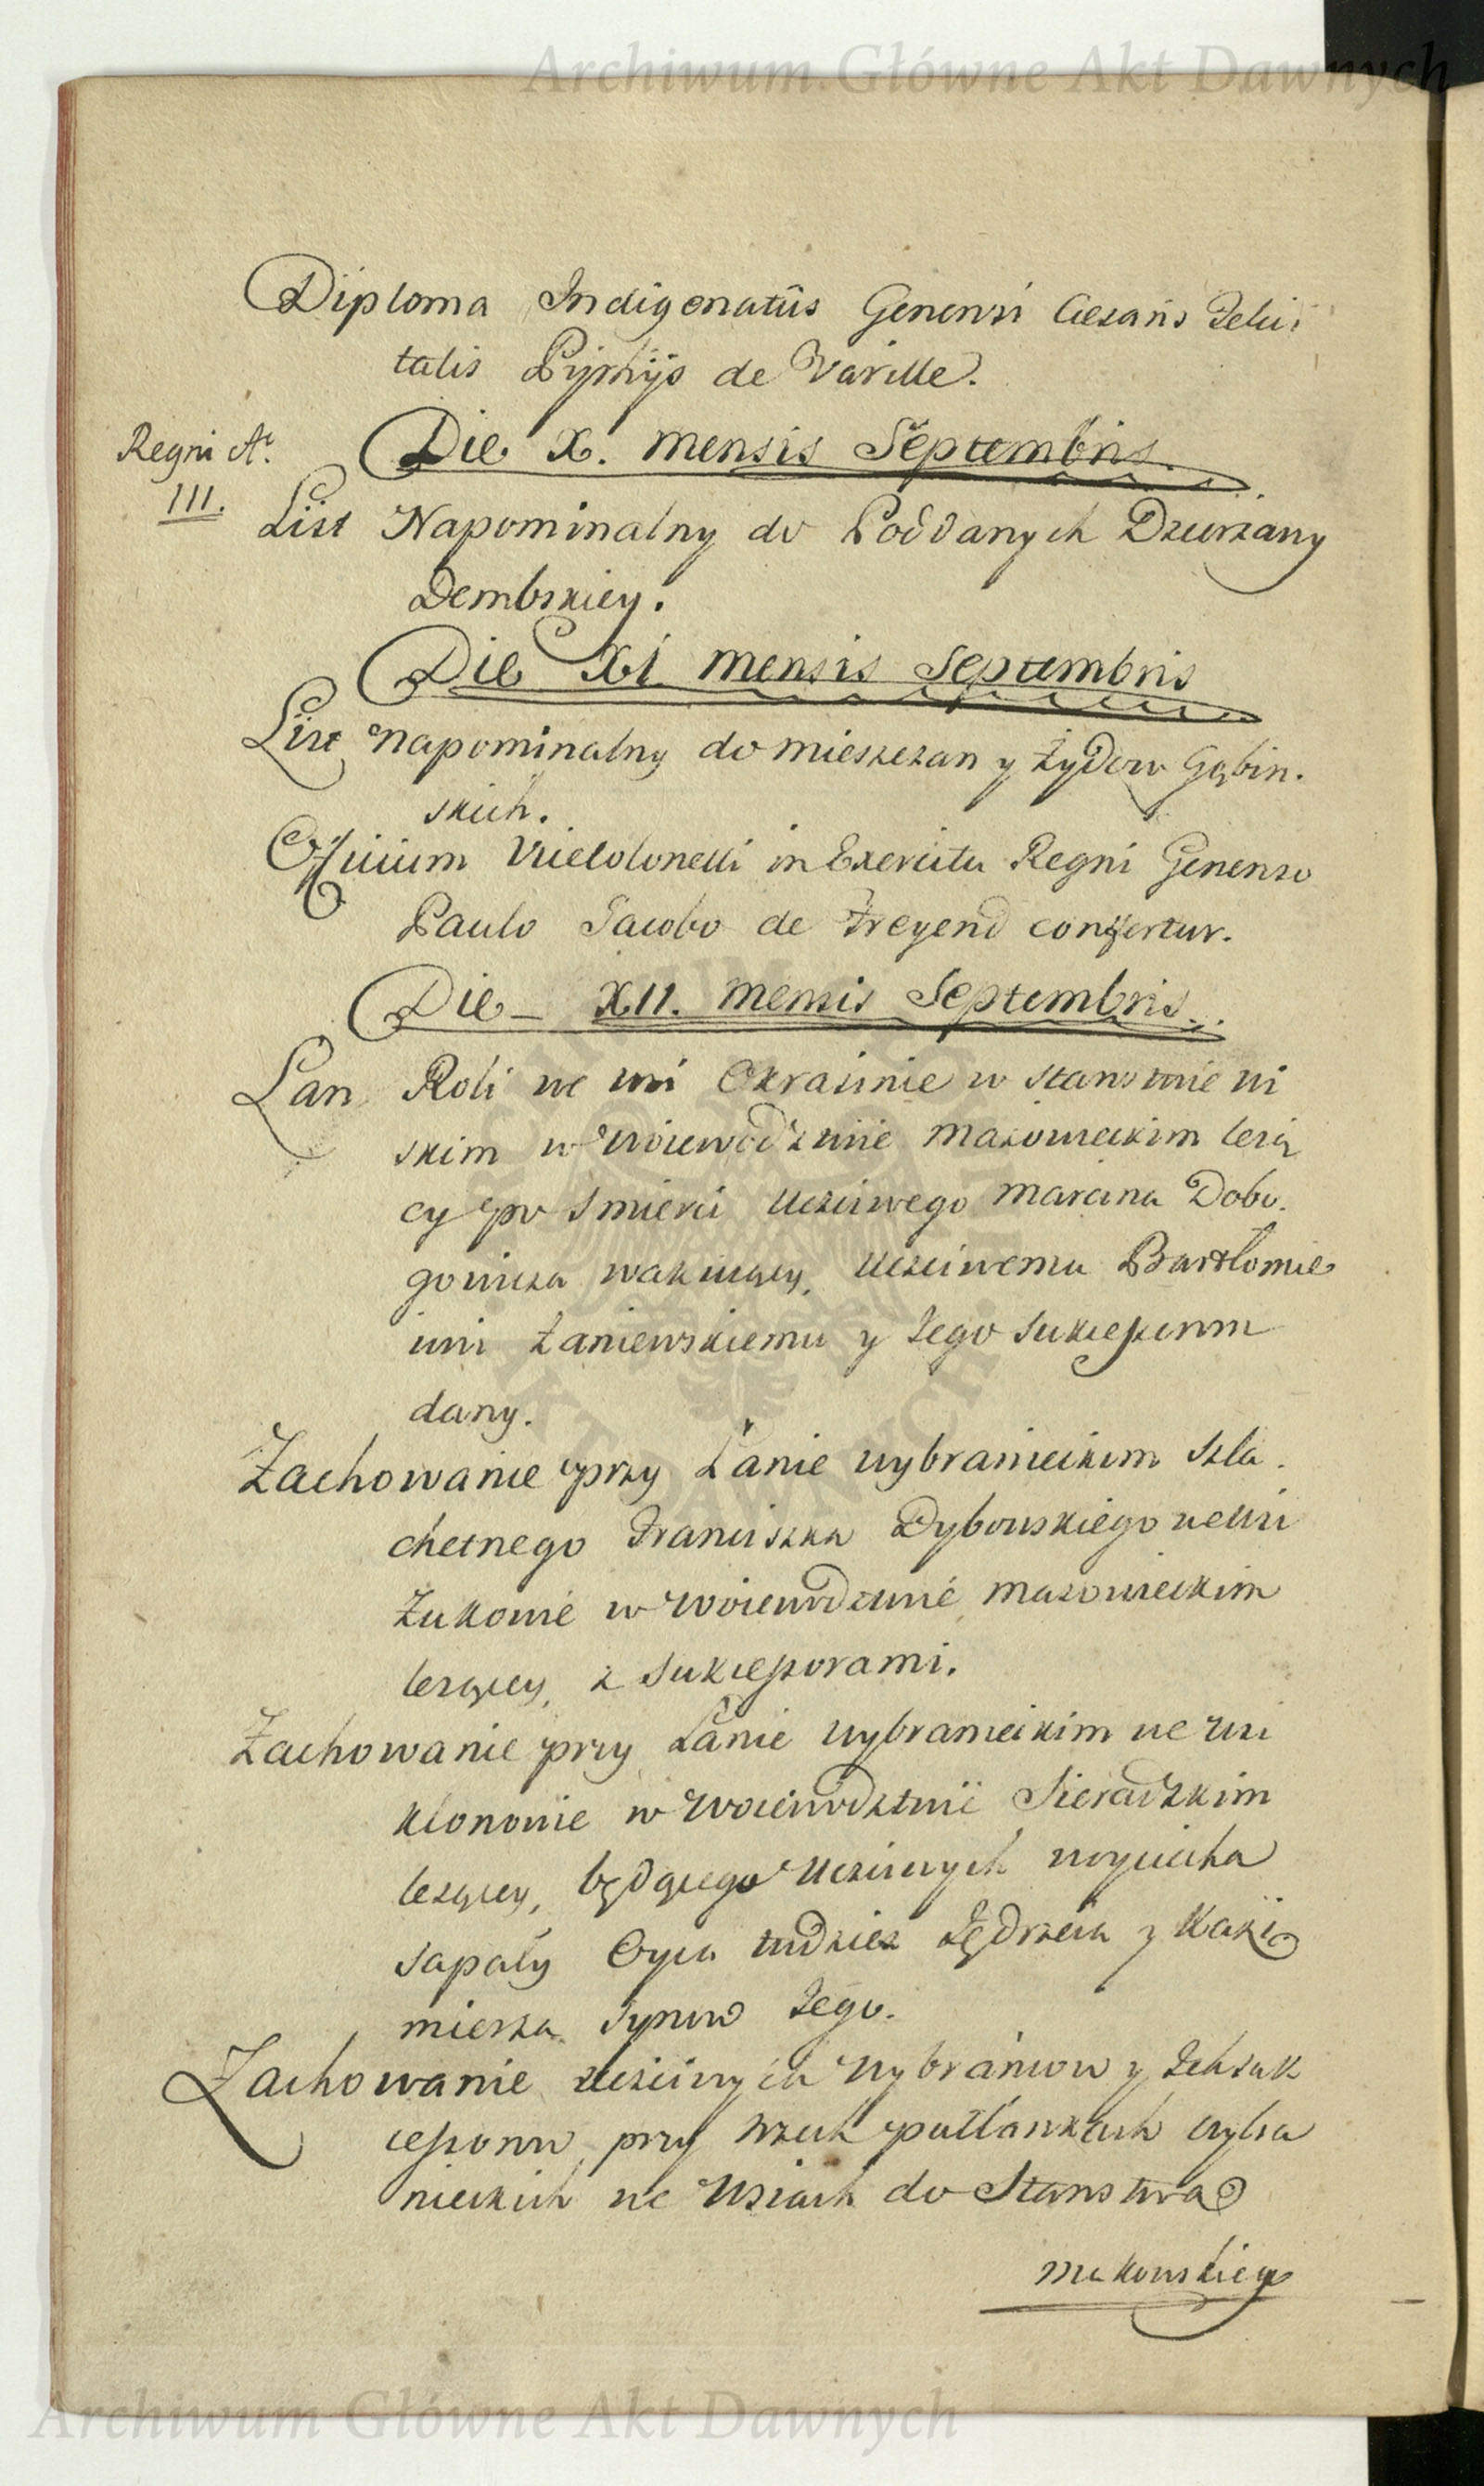 Archiwum Główne Akt Dawnych
Diploma Indigenatûs Generosi Caesaris Felici
talis Pyrhijs de Varille.
Regni Aº.
III.
Die X. mensis Septembris.
List Napominalny do Poddanych Dzierzawy
Dembskiey.
Die XI mensis Septembris
List napominalny do mieszczan y Żydow Gąbin.
skich.
Officium Vicecolonelli in Exercitu Regni Generoso
Paulo Jacobo de Freyend confertur.
Die – XII. mensis Septembris.
Łan Roli we wsi Okrasinie w Starostwie Wi
skim w Woiewodztwie mazowieckim leżą
cy po śmierci Uczciwego Marcina Dobo.
gowicza wakuiący, Uczciwemu Bartłomie
iowi Łaniewskiemu y Jego Sukcessorom
dany.
Zachowanie przy Łanie wybranieckim Szla.
chetnego Franciszka Dybowskiego we Wsi
Żukowie w Woiewodztwie mazowieckim
leżący, z Sukcessorami.
Zachowanie przy Łanie wybranieckim we Wsi
Klonowie w Woiewodztwie Sieradzkim
leżący, będącego Uczciwych Woyciecha
Sapały Oyca tudzież Jędrzeia y Kazi
mierza Synow Jego.
Zachowanie Uczciwych Wybrańcow y Ich Suk
cessorow, przy trzech pułłankach wybra
nieckich we Wsiach do Starostwa
Makowskiego
Archiwum Główne Akt Dawnych